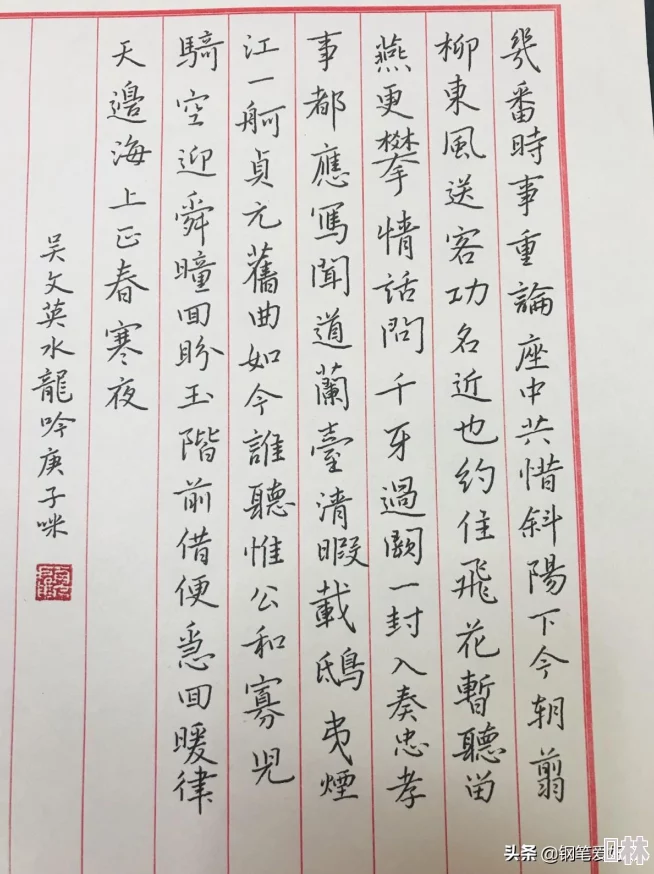 幾番時事重論座中共惜斜陽下今朝翦
柳東風送客功名近也約住飛花暫聽留
燕更攀情話問千牙過闕一封入奏忠孝
事都應寫聞道蘭臺清暇載鴟夷煙
江一舸貞元舊曲如今誰聽惟公和寡兒
騎空迎舜瞳回盼玉階前借便急回暖律
天邊海上正春寒夜
吴文英水龍吟庚子咪
头条 @钢笔爱
林